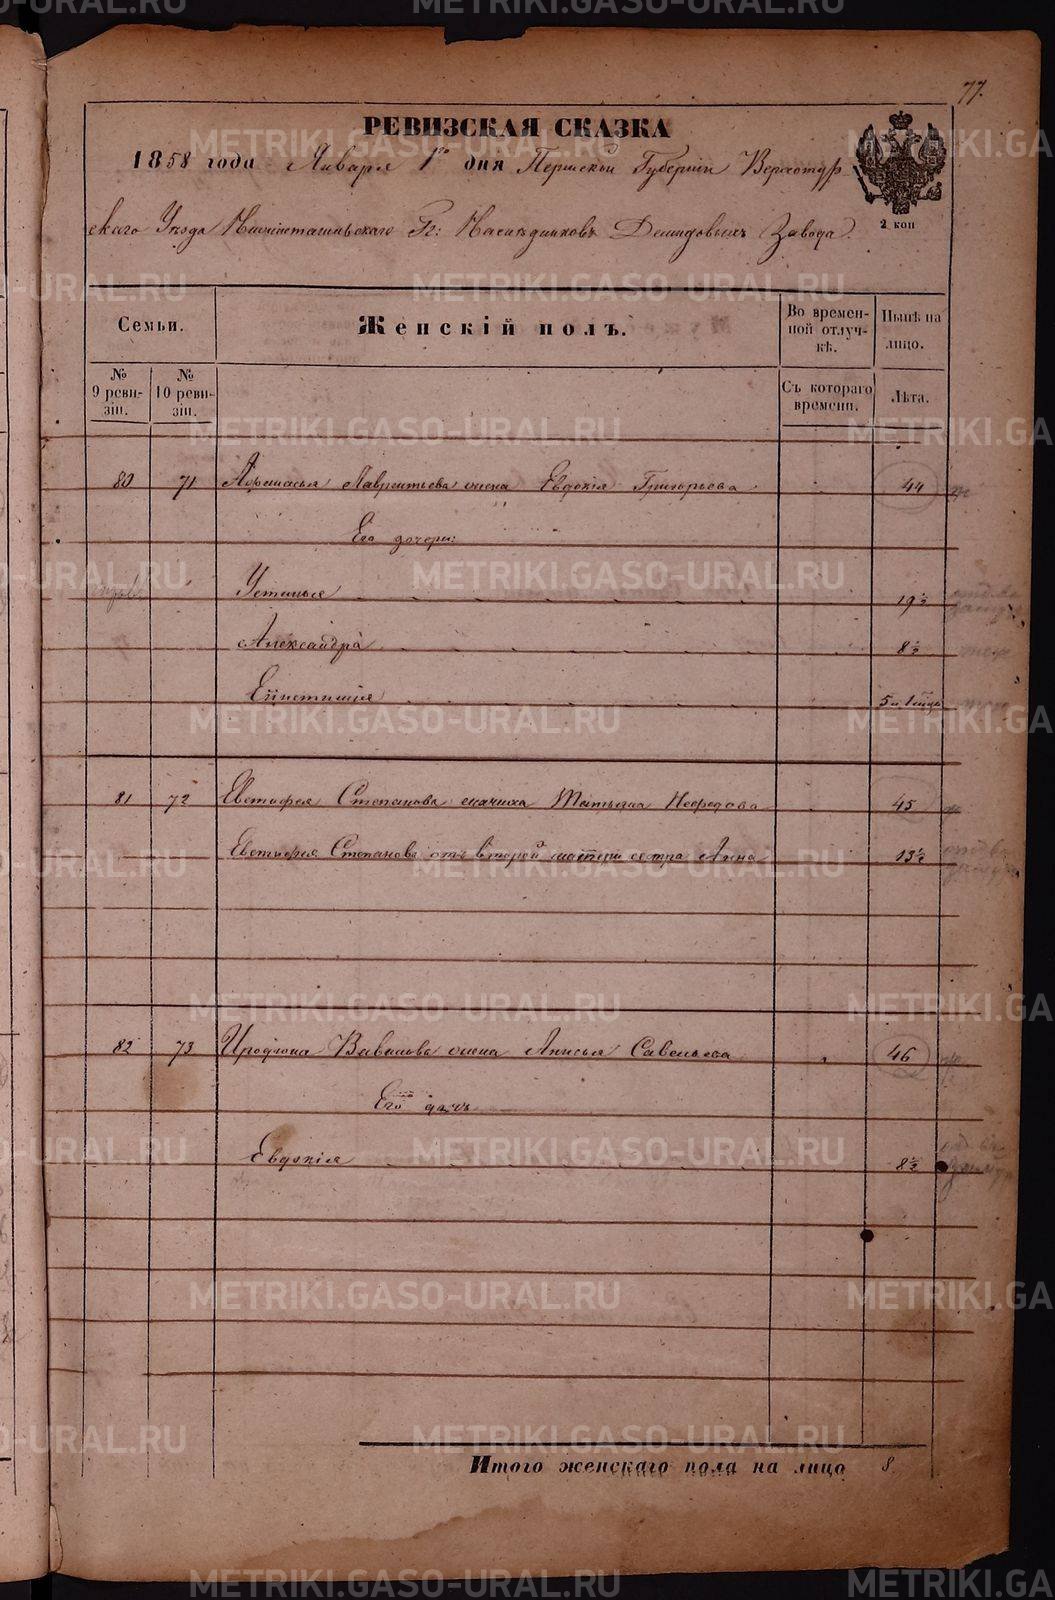 77.
РЕВИЗСКАЯ СКАЗКА
1858 года Января 1го дня Пермской Губернии Верхотур
ского Уезда Нижнетагильского Гг: Наследниковъ Демидовыхъ Завода.
2 коп
Семьи.
Женскій полъ.
Во времен-
ной отлуч-
кѣ.
Нынѣ на
лицо.
№
9 реви-
зіи.
№
10 реви-
зіи.
Съ котораго
времени.
Лѣта.
80 71 Афанасья Лаврентьева жена Евдокія Григорьева 44
Его дочери:
Устинья 19½
Александра 8½
Епистимія 5 и 1 мцъ
81 72 Евстифея Степанова мачиха Татьяна Нефедова 45
Евстифея Степанова отъ второй матери сестра Анна 13½
82 73 Иродіона Вавилова жена Анисья Савельева 46
Его дочь
Евдокія 8½
Итого женскаго пола на лицо 8
METRIKI.GASO-URAL.RU